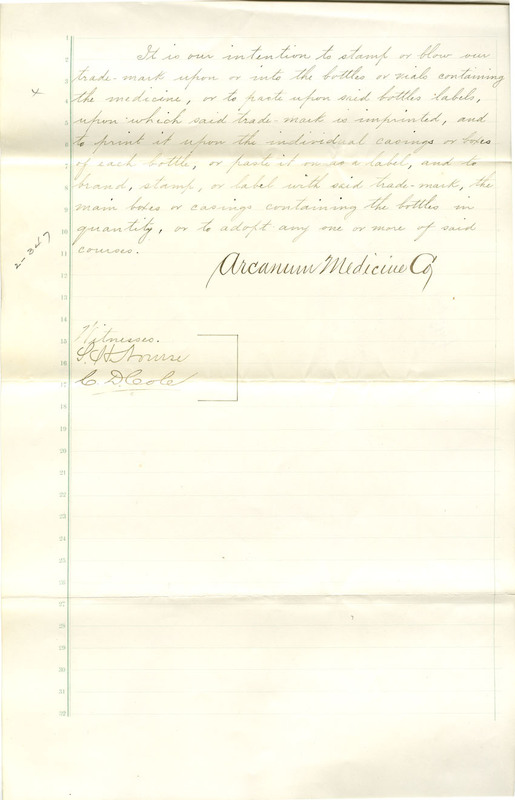 It is our intention to stamp or blow our
trade-mark upon or into the bottles or vials containing
the medicine, or to paste upon said bottles labels,
upon which said trade-mark is imprinted, and
to print it upon the individual casings or boxes
of each bottle, or paste it on as a label, and to
brand, stamp, or label with said trade-mark, the
main boxes or casings containing the bottles in
quantity, or to adopt any one or more of said
courses.
Arcanum Medicine Co
Witnesses.
S. H. Nourse
C. D. Cole
x
2-347
1
2
3
4
5
6
7
8
9
10
11
12
13
14
15
16
17
18
19
20
21
22
23
24
25
26
27
28
29
30
31
32